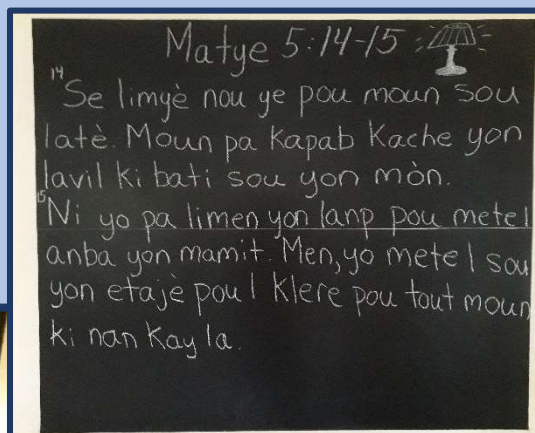 Matye 5:14-15
14 Se limyè nou ye pou moun sou
latè. Moun pa kapab kache yon
lavil ki bati sou yon mòn.
15 Ni yo pa limen yon lanp pou mete l
anba yon mamit. Men, yo mete l sou
yon etajè pou l klere pou tout moun
ki nan kay la.